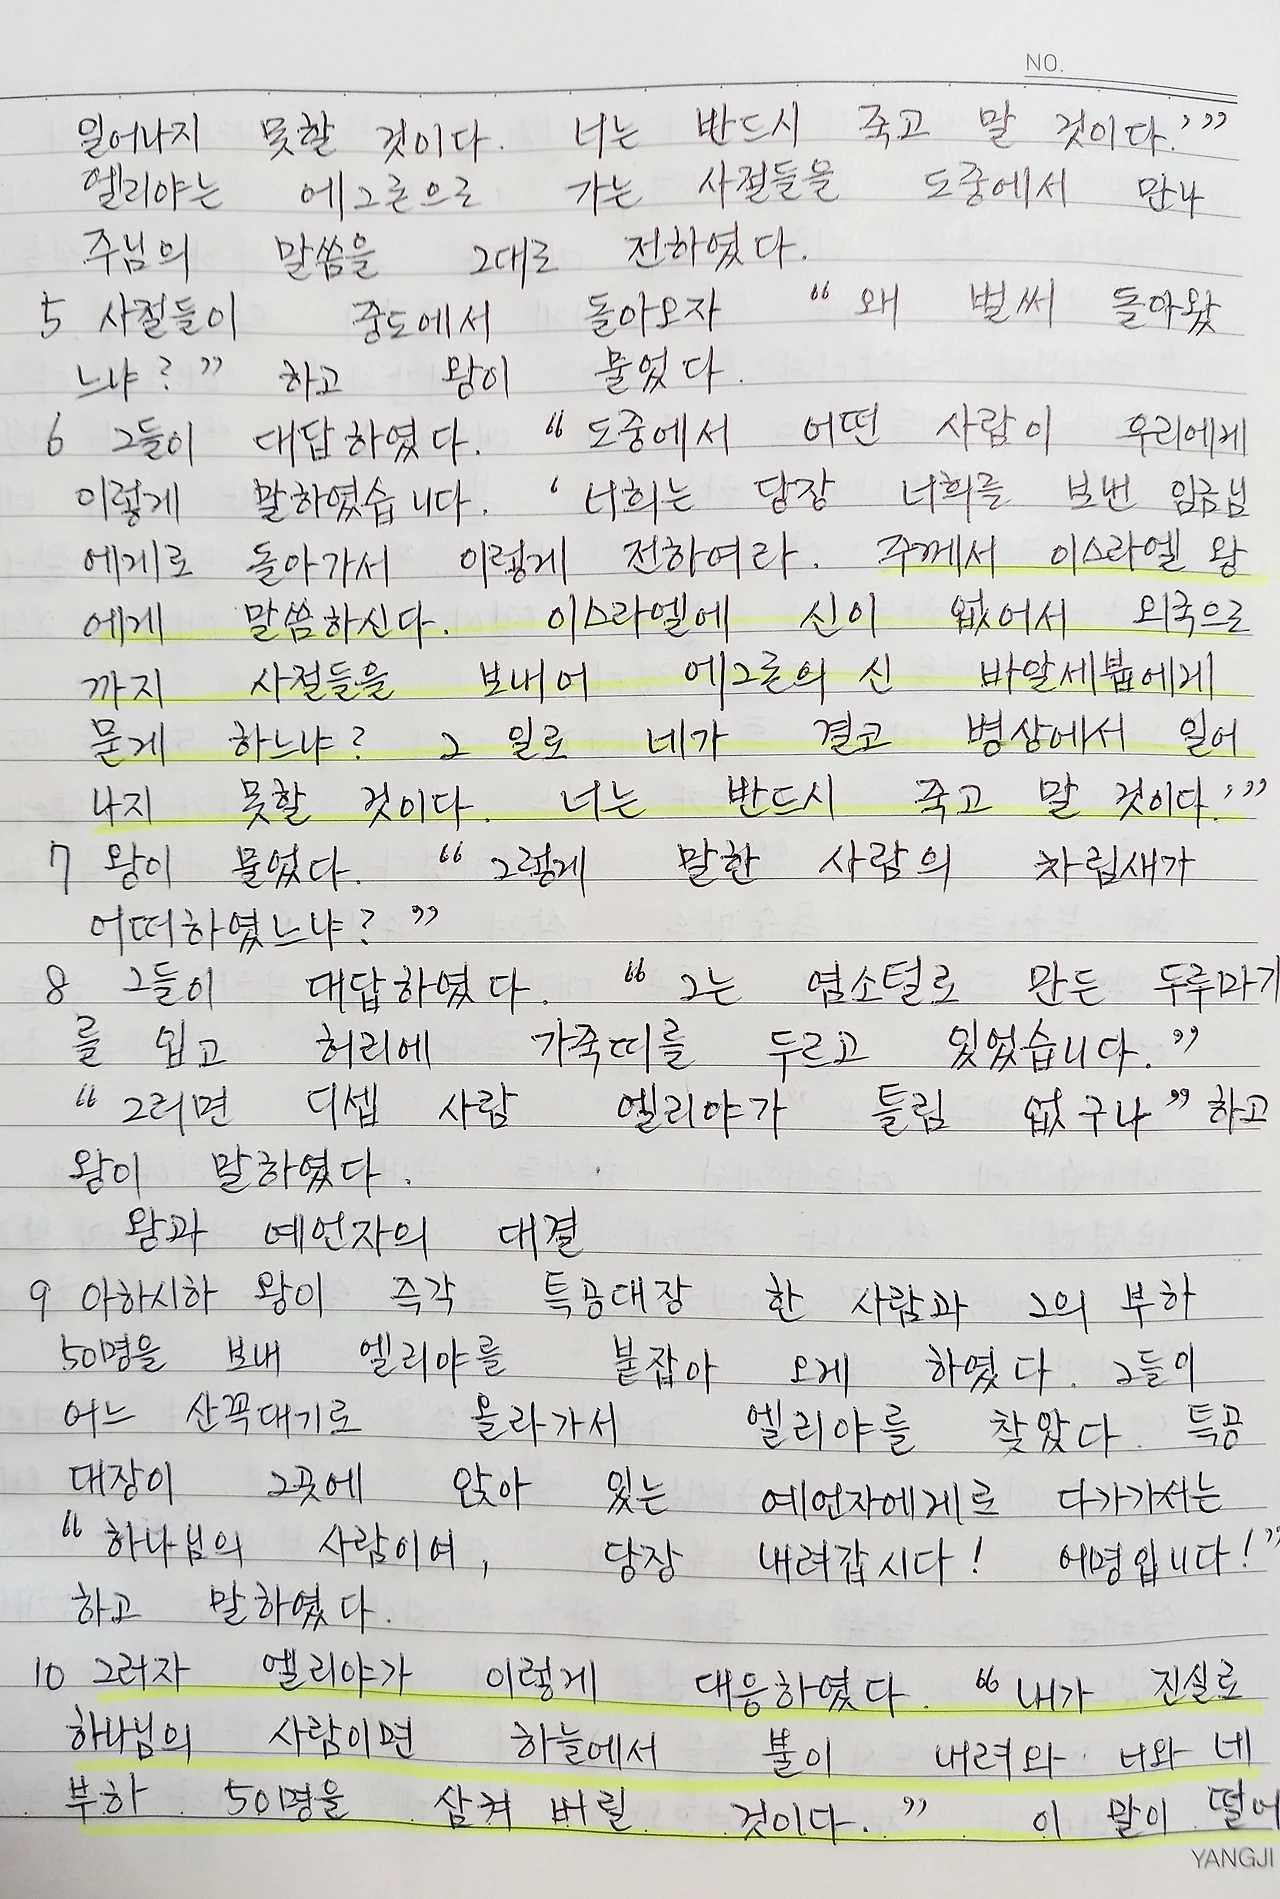 NO.
일어나지 못할 것이다. 너는 반드시 죽고 말 것이다.’”
엘리야는 에그론으로 가는 사절들을 도중에서 만나
주님의 말씀을 그대로 전하였다.
5 사절들이 중도에서 돌아오자 “왜 벌써 돌아왔
느냐?” 하고 왕이 물었다.
6 그들이 대답하였다. “도중에서 어떤 사람이 우리에게
이렇게 말하였습니다. ‘너희는 당장 너희를 보낸 임금님
에게로 돌아가서 이렇게 전하여라. 주께서 이스라엘 왕
에게 말씀하신다. 이스라엘에 신이 없어서 외국으로
까지 사절들을 보내어 에그론의 신 바알세붑에게
묻게 하느냐? 그 일로 네가 결코 병상에서 일어
나지 못할 것이다. 너는 반드시 죽고 말 것이다.’”
7 왕이 물었다. “그렇게 말한 사람의 차림새가
어떠하였느냐?”
8 그들이 대답하였다. “그는 염소털로 만든 두루마기
를 입고 허리에 가죽띠를 두르고 있었습니다.”
“그러면 디셉 사람 엘리야가 틀림 없구나” 하고
왕이 말하였다.
왕과 예언자의 대결
9 아하시하 왕이 즉각 특공대장 한 사람과 그의 부하
50명을 보내 엘리야를 붙잡아 오게 하였다. 그들이
어느 산꼭대기로 올라가서 엘리야를 찾았다. 특공
대장이 그곳에 앉아 있는 예언자에게로 다가가서는
“하나님의 사람이여, 당장 내려갑시다! 어명입니다!”
하고 말하였다.
10 그러자 엘리야가 이렇게 대응하였다. “내가 진실로
하나님의 사람이면 하늘에서 불이 내려와 너와 네
부하 50명을 삼켜 버릴 것이다.” 이 말이 떨어
YANGJI